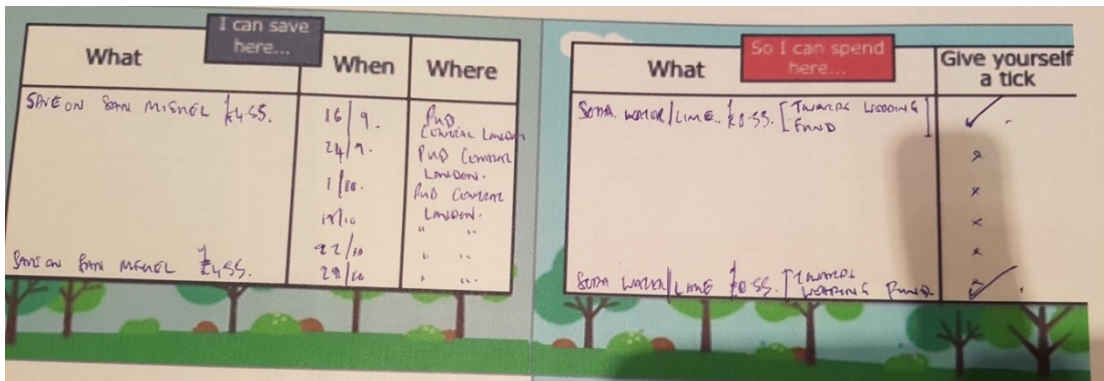 I can save
here...
What
When
Where
SAVE ON SAN MIGUEL £4.55.
16/9.
PUB
CENTRAL LONDON
24/9.
PUB CENTRAL
LONDON.
1/10.
PUB CENTRAL
LONDON.
19/10
" "
22/10
" "
SAVE ON SAN MIGUEL £4.55.
29/10
" "
So I can spend
here...
What
Give yourself
a tick
SODA WATER/LIME. £0.55. [TOWARDS WEDDING
FUND]
SODA WATER/LIME £0.55. [TOWARDS
WEDDING FUND